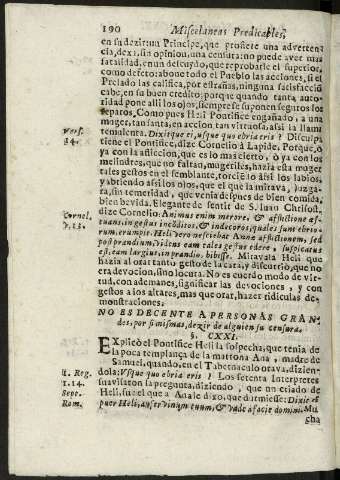 190 Miscelaneas Predicables,
en su dezir: un Principe, que profiere una advertencia,
dexa sin opinion, una censura: no puede aver mas
fatalidad, en un descuydo, que reprobarle el superior,
como defeto: abone todo el Pueblo las acciones, si el
Prelado las califica, por estrañas, ninguna satisfacciõ
cabe, en su buen credito: porque quando tanta autoridad
pone alli los ojos, siempre se suponen seguros los
reparos. Como pues Heli Pontifice engañado, a una
muger, tan santa, en accion tan virtuosa, assi la llama
Vers. temulenta. Dixitque ei, usque quo ebria eris? Disculpa
14. tiene el Pontifice, dize Cornelio à Lapide. Porque, ò
ya con la afliccion, que es lo mas cierto, ò ya con los
melindres, que no faltan, mugeriles, hazia esta muger
tales gestos en el semblante, torciẽdo assi los labios,
y abriendo assi los ojos, que el que la mirava, juzgara,
sin temeridad, que venia despues de bien comida,
bien bevida. Elegante de sentir de S. Iuan Chrisost.
Cornel. dize Cornelio: Animus enim merore, & afflictione
v. 13. in gestus incõditos, & indecoros, quales sunt ebriorum,
erumpit. Heli vero nesciebat Annæ afflictionem, sed
post prandium, videns eam tales gestus edere, suspicatus
est, eam largius, in prandio, bibisse. Miravala Heli que
hazia al orar tanto gesto de la cara, y discurriò, que no
era devocion, sino locura. No es cuerdo modo de virtud,
con ademanes, significar las devociones, y con
gestos a los altares, mas que orar, hazer ridiculas demonstraciones.
NO ES DECENTE A PERSONAS GRANDES,
por si mismas, dezir de alguien su censura.
§. CXXI.
EXplicò el Pontifice Heli la sospecha, que tenia de
la poca templança de la matrona Ana, madre de
Samuel, quando, en el Tabernaculo orava, diziendola:
1. Reg. Vsque quo ebria eris? Los setenta Interpretes
1. 14. suavisaron la pregunta, diziendo, que un criado de
Sept. Heli, fue el que a Ana le dixo, que durmiesse: Dixit ei
Rom. puer Heli, aufer vinum tuum, & vade a facie domini. Mucha